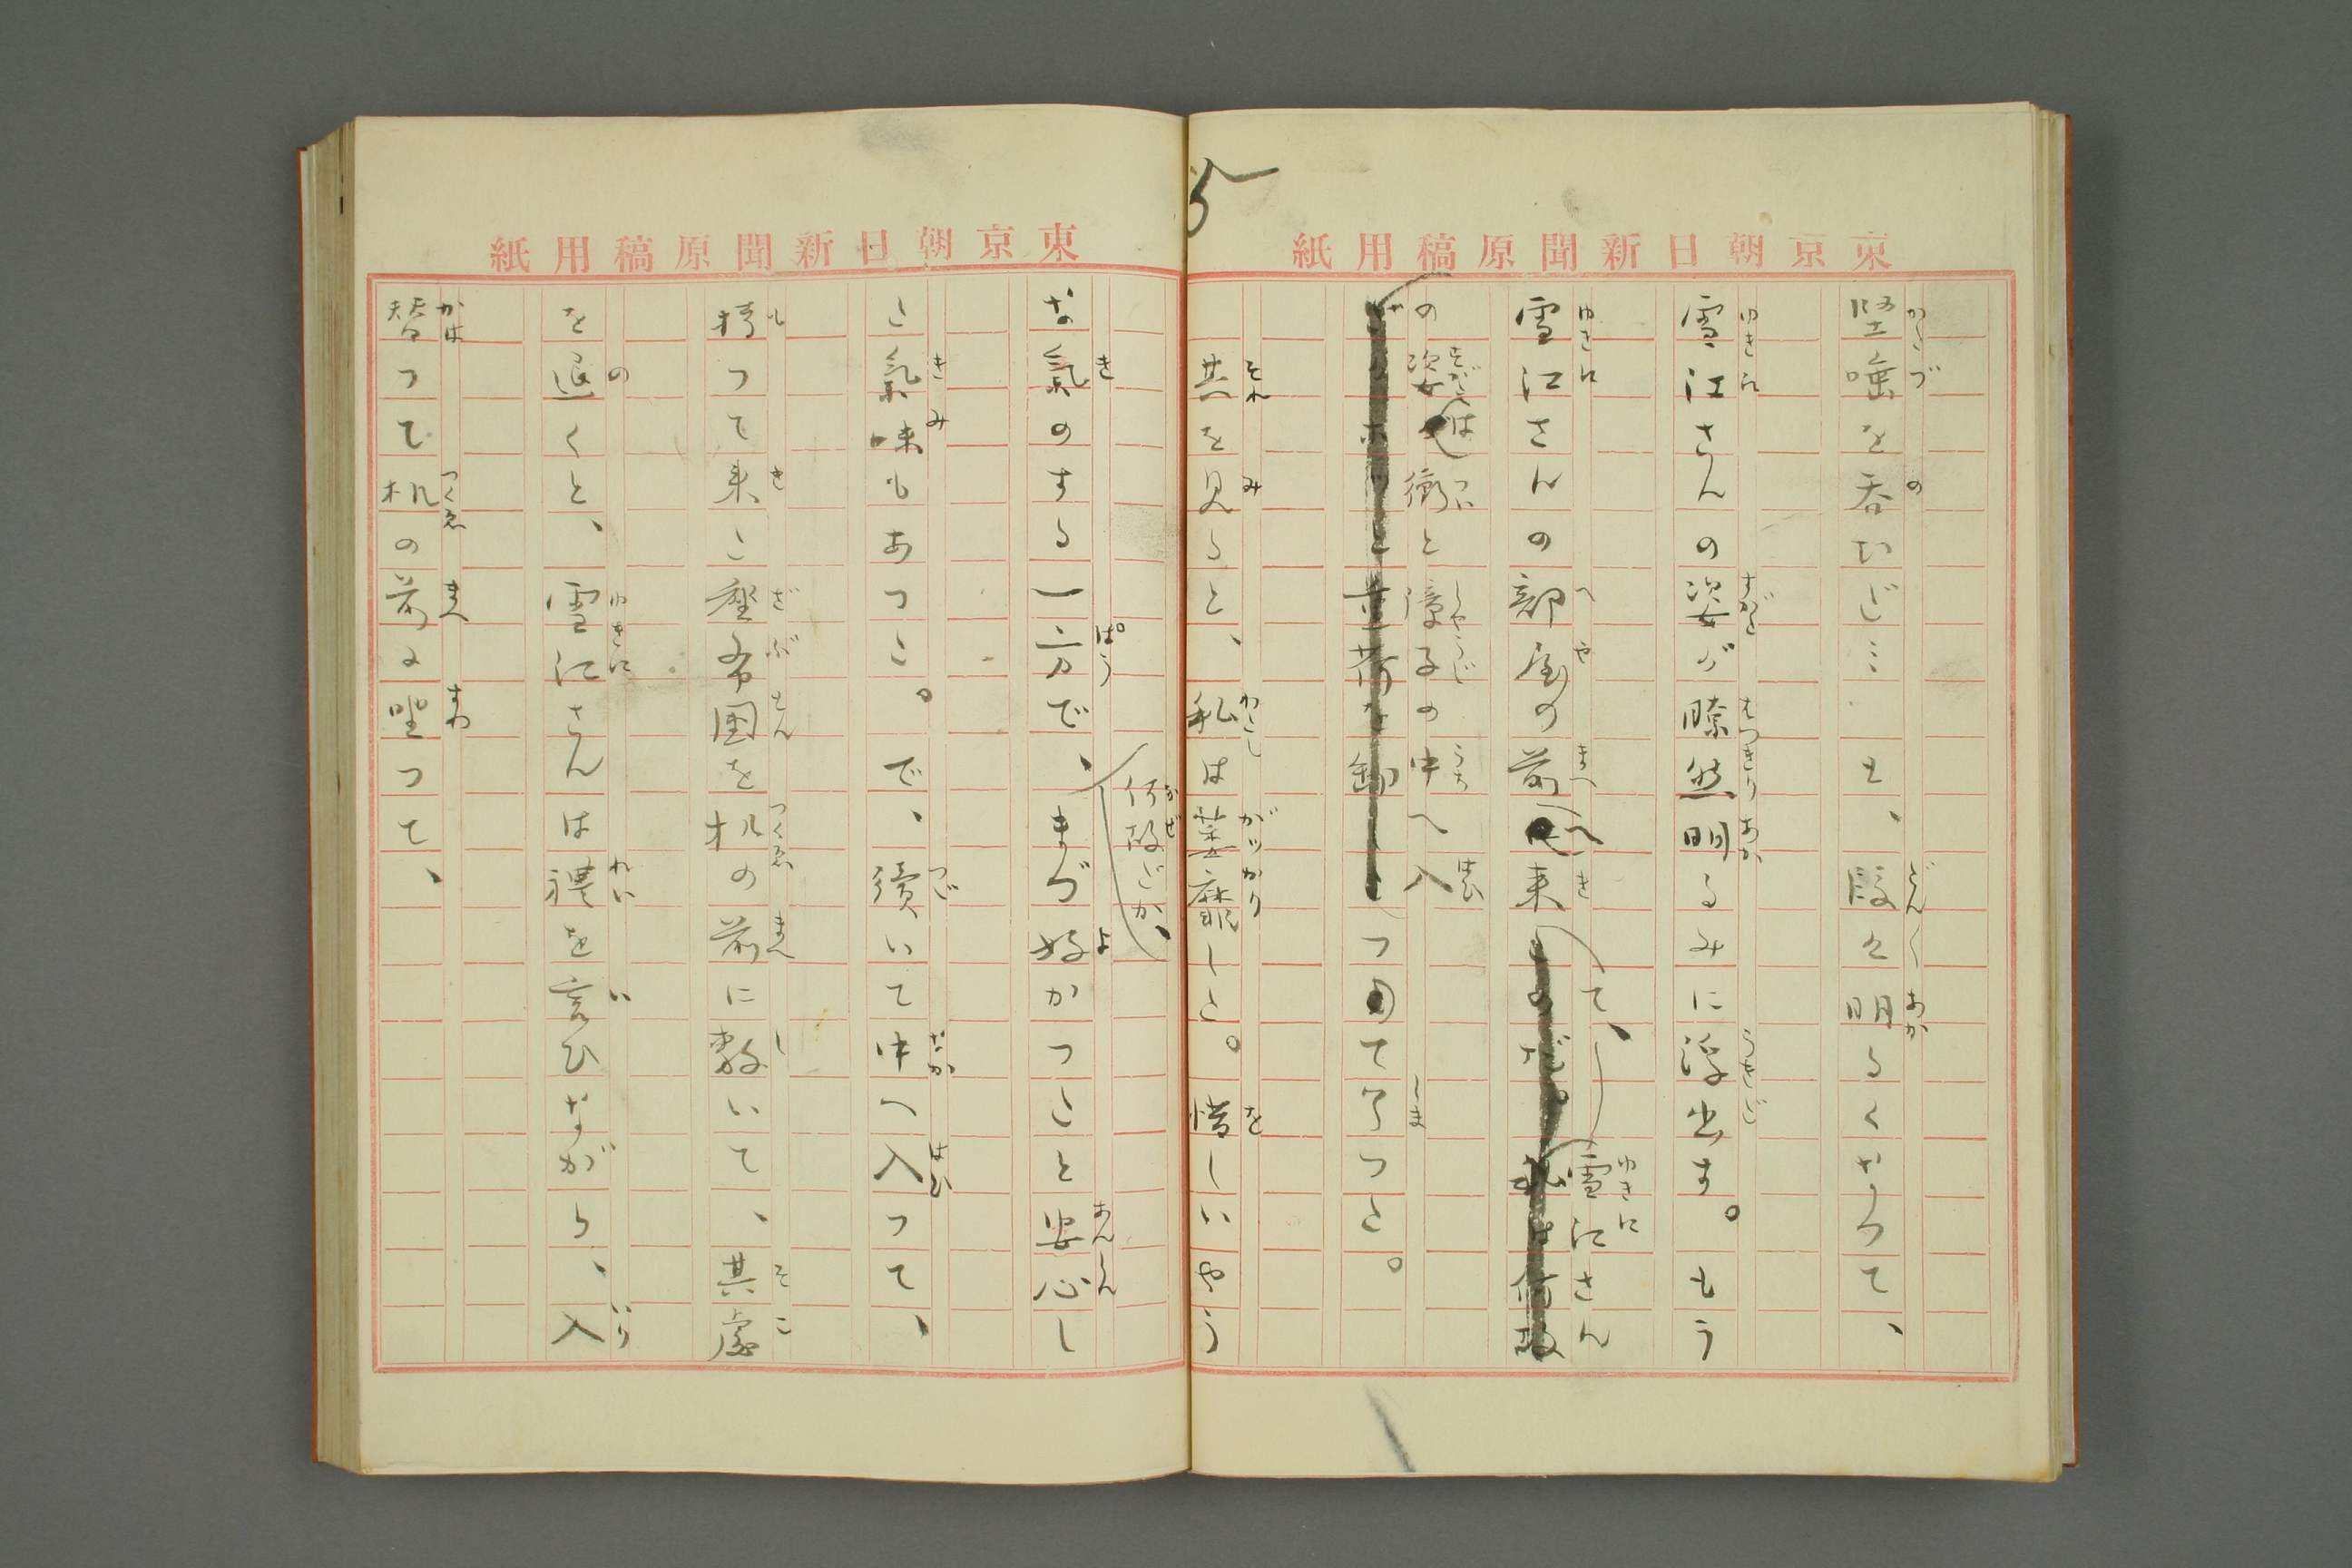 東京朝日新聞原稿用紙
堅唾を呑むだ…と、段々明るくなつて、
雪江さんの姿が瞭然明るみに浮出す。もう
雪江さんの部屋の前へ来て、雪江さん
の姿は衝と障子の中へ入
つて了つた。
其を見ると、私は萎靡した。惜しいやう
5
東京朝日新聞原稿用紙
な氣のする一方で、何故だか、まづ好かつたと安心し
た氣味もあつた。で、續いて中へ入つて、
持つて来た座布団を机の前に敷いて、其處
を退くと、雪江さんは禮を言ひながら、入
替つて机の前に坐つて、